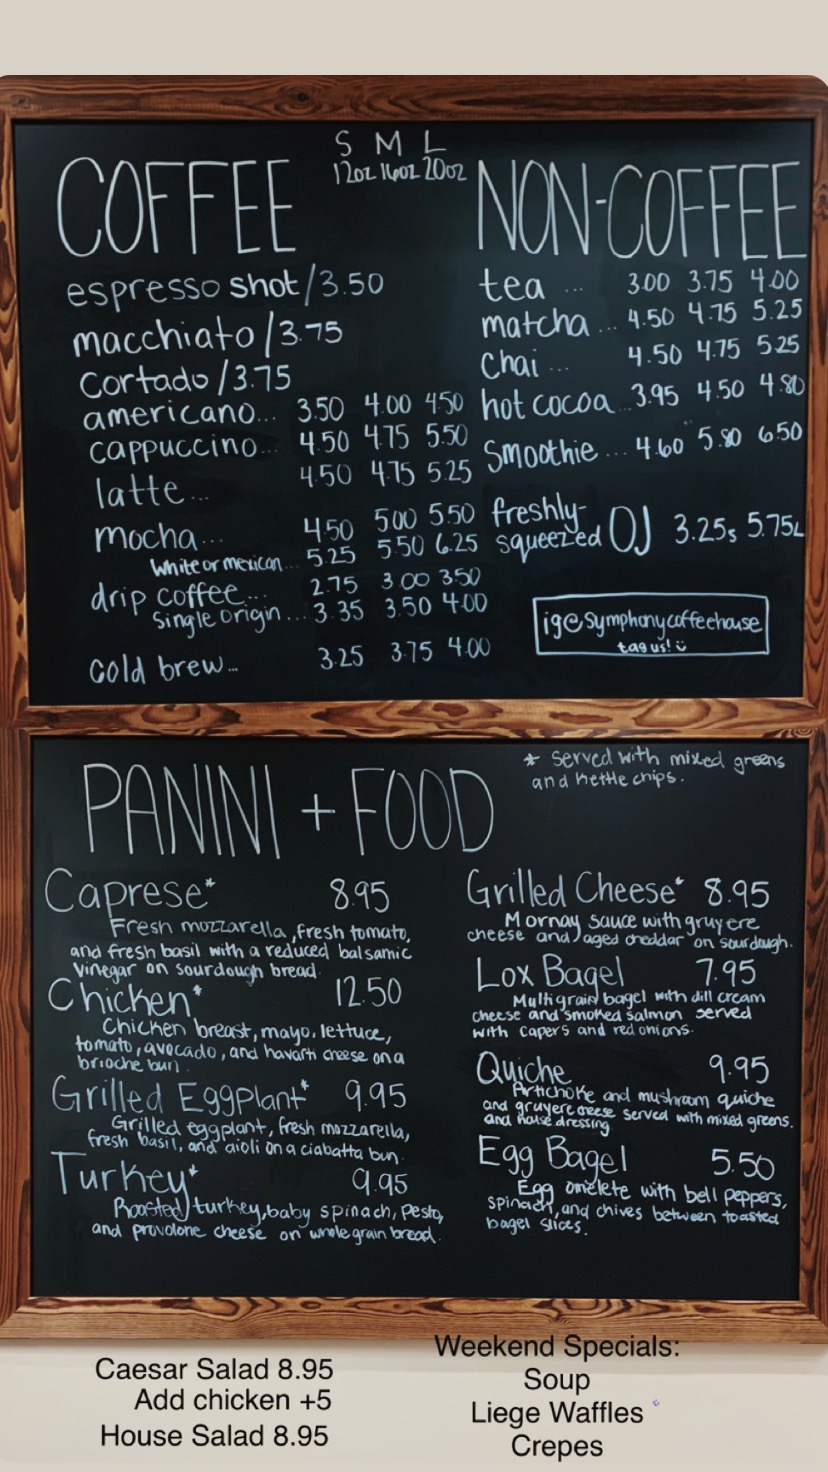 S M L
12oz 16oz 20oz
COFFEE
espresso shot/3.50
macchiato/3.75
cortado/3.75
americano... 3.50 4.00 4.50
cappuccino... 4.50 4.75 5.50
latte... 4.50 4.75 5.25
mocha... 4.50 5.00 5.50
white or mexican... 5.25 5.50 6.25
drip coffee... 2.75 3.00 3.50
single origin... 3.35 3.50 4.00
cold brew... 3.25 3.75 4.00
NON-COFFEE
tea ... 3.00 3.75 4.00
matcha ... 4.50 4.75 5.25
Chai ... 4.50 4.75 5.25
hot cocoa... 3.95 4.50 4.80
Smoothie ... 4.60 5.80 6.50
freshly-
squeezed OJ 3.25s 5.75L
ig@symphonycoffeehouse
tag us!
PANINI + FOOD
* served with mixed greens
and kettle chips.
Caprese* 8.95
Fresh mozzarella, fresh tomato,
and fresh basil with a reduced balsamic
vinegar on sourdough bread.
Chicken* 12.50
Chicken breast, mayo, lettuce,
tomato, avocado, and havarti cheese on a
brioche bun.
Grilled Eggplant* 9.95
Grilled eggplant, fresh mozzarella,
fresh basil, and aioli on a ciabatta bun.
Turkey* 9.95
Roasted turkey, baby spinach, pesto,
and provolone cheese on whole grain bread.
Grilled Cheese* 8.95
Mornay sauce with gruyere
cheese and aged cheddar on sourdough.
Lox Bagel 7.95
Multi grain bagel with dill cream
cheese and smoked salmon served
with capers and red onions.
Quiche 9.95
Artichoke and mushroom quiche
and gruyere cheese served with mixed greens,
and house dressing
Egg Bagel 5.50
Egg omelete with bell peppers,
spinach, and chives between toasted
bagel slices.
Caesar Salad 8.95
Add chicken +5
House Salad 8.95
Weekend Specials:
Soup
Liege Waffles
Crepes